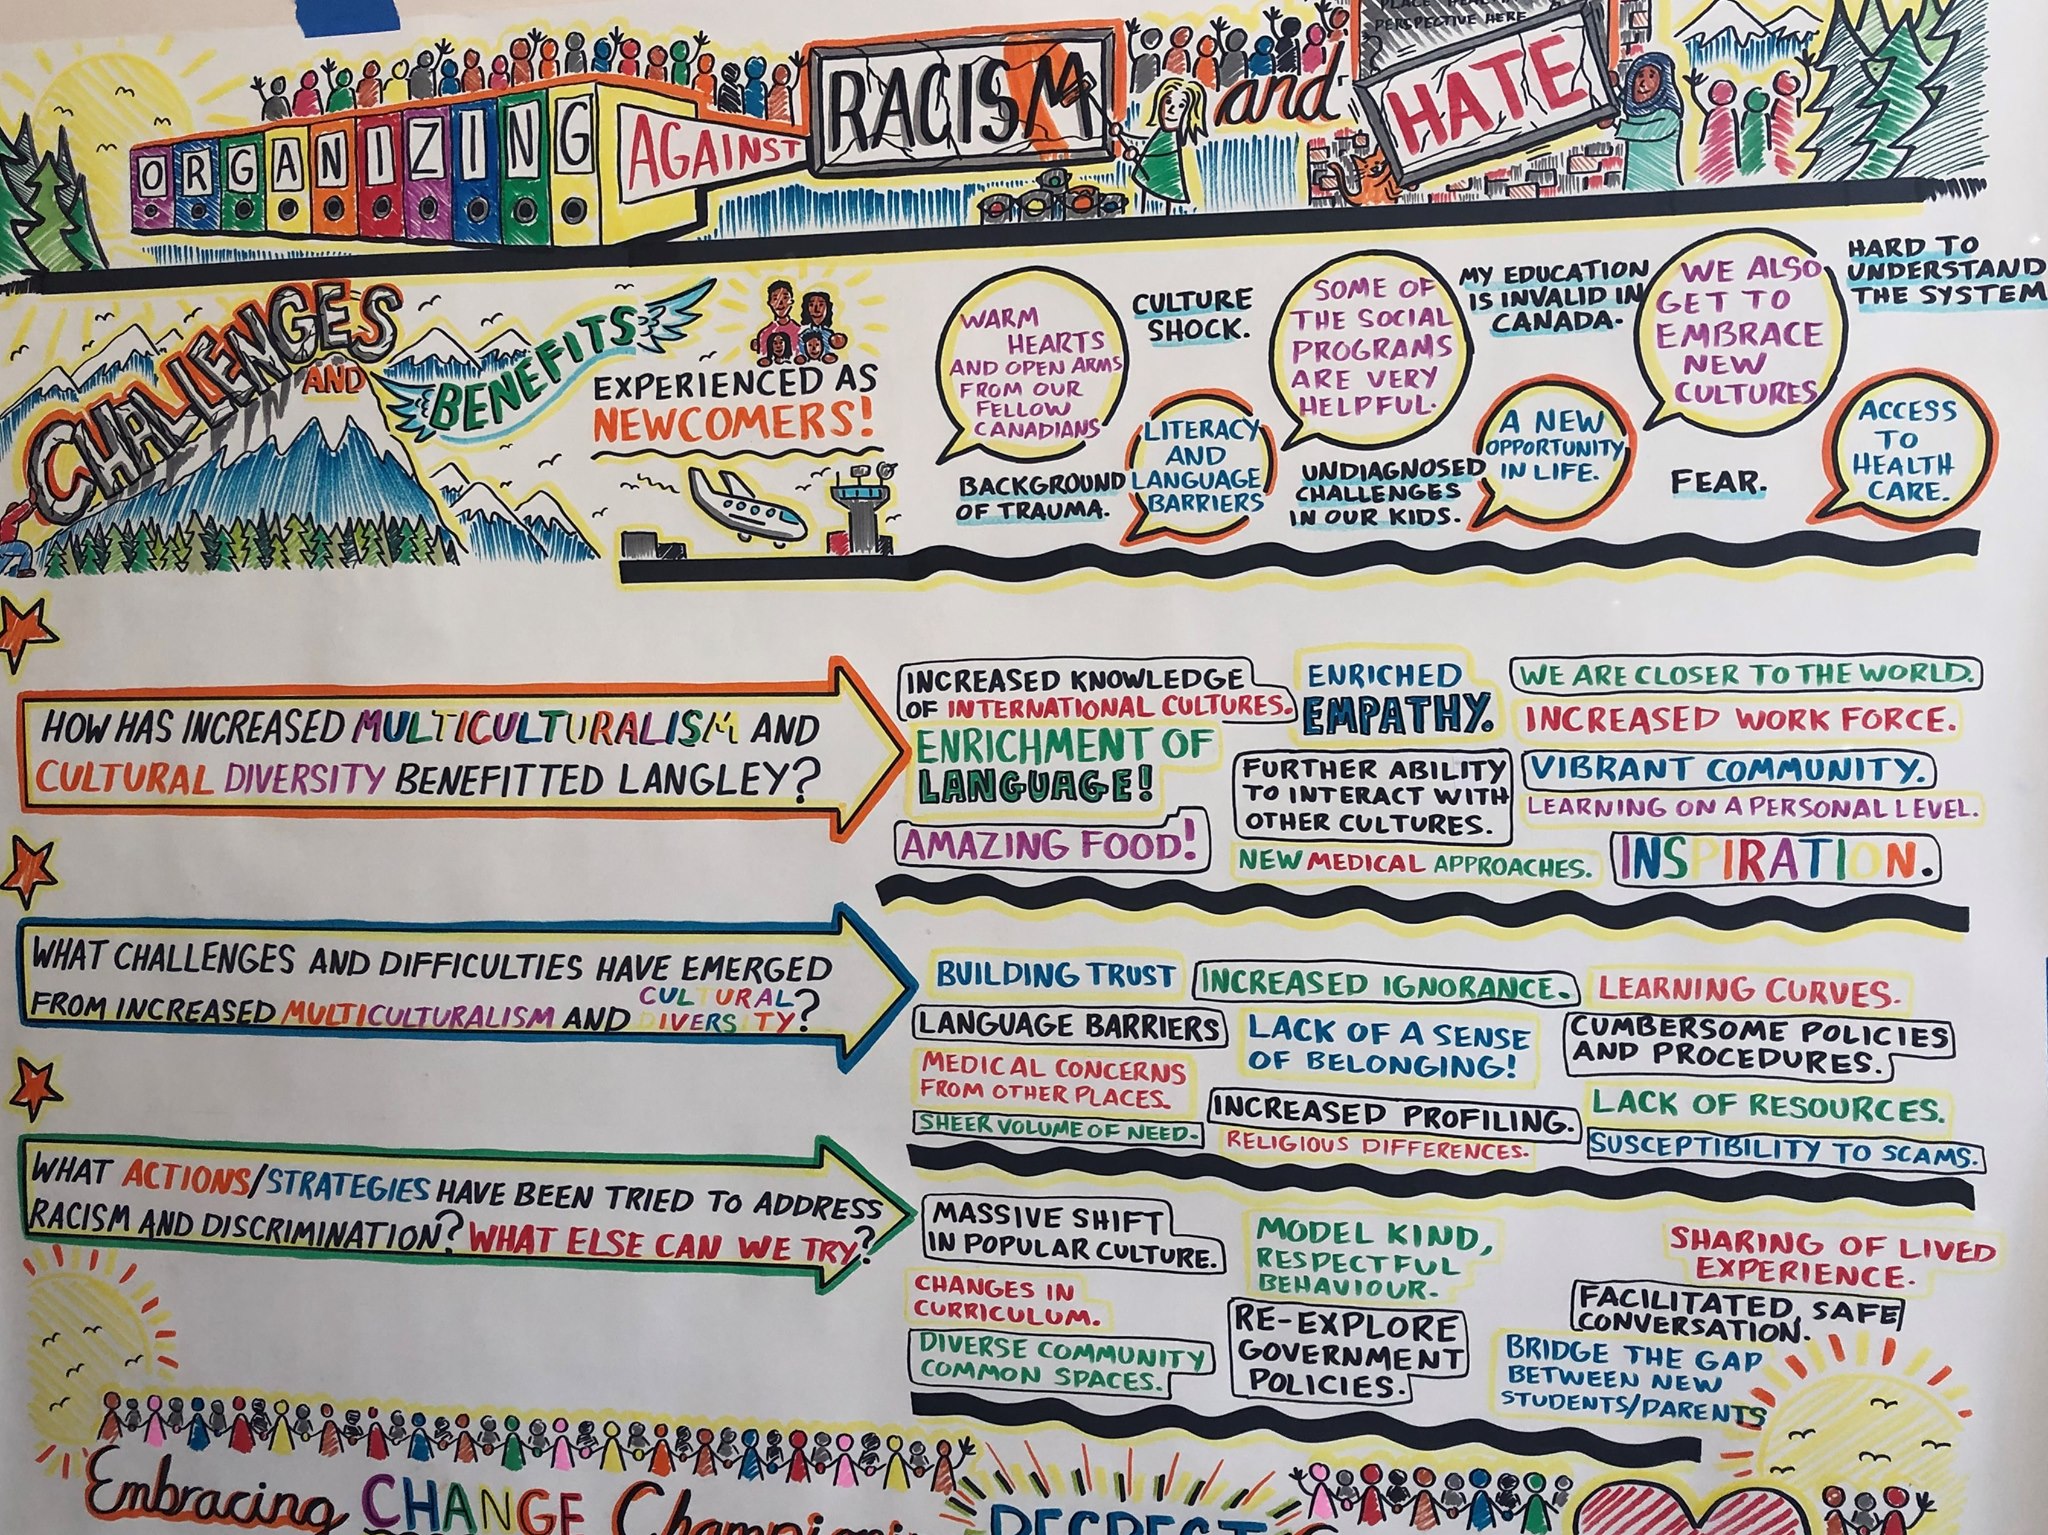 PERSPECTIVE HERE
ORGANIZING AGAINST RACISM and HATE
CHALLENGES
AND
BENEFITS
EXPERIENCED AS
NEWCOMERS!
WARM
HEARTS
AND OPEN ARMS
FROM OUR
FELLOW
CANADIANS
CULTURE
SHOCK.
SOME OF
THE SOCIAL
PROGRAMS
ARE VERY
HELPFUL.
MY EDUCATION
IS INVALID IN
CANADA.
WE ALSO
GET TO
EMBRACE
NEW
CULTURES
HARD TO
UNDERSTAND
THE SYSTEM
BACKGROUND
OF TRAUMA.
LITERACY
AND
LANGUAGE
BARRIERS
UNDIAGNOSED
CHALLENGES
IN OUR KIDS.
A NEW
OPPORTUNITY
IN LIFE.
FEAR.
ACCESS
TO
HEALTH
CARE.
HOW HAS INCREASED MULTICULTURALISM AND
CULTURAL DIVERSITY BENEFITTED LANGLEY?
INCREASED KNOWLEDGE
OF INTERNATIONAL CULTURES.
ENRICHMENT OF
LANGUAGE!
AMAZING FOOD!
ENRICHED
EMPATHY.
FURTHER ABILITY
TO INTERACT WITH
OTHER CULTURES.
NEW MEDICAL APPROACHES.
WE ARE CLOSER TO THE WORLD.
INCREASED WORK FORCE.
VIBRANT COMMUNITY.
LEARNING ON A PERSONAL LEVEL.
INSPIRATION.
WHAT CHALLENGES AND DIFFICULTIES HAVE EMERGED
FROM INCREASED MULTICULTURALISM AND CULTURAL DIVERSITY?
BUILDING TRUST
LANGUAGE BARRIERS
MEDICAL CONCERNS
FROM OTHER PLACES.
SHEER VOLUME OF NEED.
INCREASED IGNORANCE.
LACK OF A SENSE
OF BELONGING!
INCREASED PROFILING.
RELIGIOUS DIFFERENCES.
LEARNING CURVES.
CUMBERSOME POLICIES
AND PROCEDURES.
LACK OF RESOURCES.
SUSCEPTIBILITY TO SCAMS.
WHAT ACTIONS/STRATEGIES HAVE BEEN TRIED TO ADDRESS
RACISM AND DISCRIMINATION? WHAT ELSE CAN WE TRY?
MASSIVE SHIFT
IN POPULAR CULTURE.
CHANGES IN
CURRICULUM.
DIVERSE COMMUNITY
COMMON SPACES.
MODEL KIND,
RESPECTFUL
BEHAVIOUR.
RE-EXPLORE
GOVERNMENT
POLICIES.
SHARING OF LIVED
EXPERIENCE.
FACILITATED, SAFE
CONVERSATION.
BRIDGE THE GAP
BETWEEN NEW
STUDENTS/PARENTS
Embracing CHANGE
RESPECT